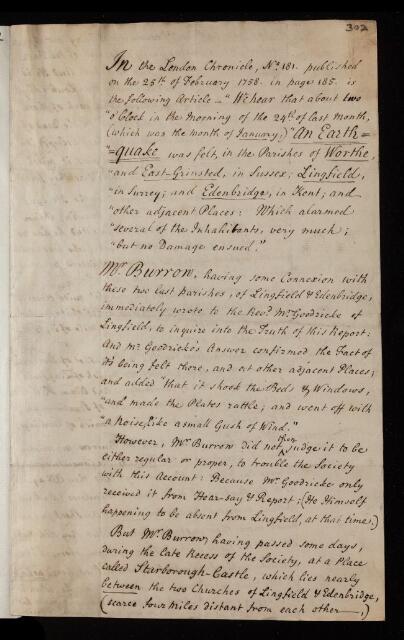 302
In the London Chronicle, No. 181. published
on the 25th of February 1758. in page 185. is
the following Article — "We hear that about two
"o'Clock in the Morning of the 24th of last Month,
(which was the Month of January,) "An Earth=
"=quake was felt, in the Parishes of Worthe,
"and East-Grinsted, in Sussex; Lingfield,
"in Surrey; and Edenbridge, in Kent; and
"other adjacent Places: Which alarmed
"several of the Inhabitants, very much;
"but no Damage ensued."
Mr. Burrow, having some Connexion with
these two last Parishes, of Lingfield & Edenbridge,
immediately wrote to the Revd. Mr. Goodricke of
Lingfield, to inquire into the Truth of this Report:
And Mr. Goodricke's Answer confirmed the Fact of
its being felt there, and at other adjacent Places;
and added "that it shook the Beds & Windows,
"and made the Plates rattle; and went off with
"a Noise, like a small Gush of Wind."
However, Mr. Burrow did not then judge it to be
either regular or proper, to trouble the Society
with this Account: Because Mr. Goodricke only
received it from Hear-say & Report; (He Himself
happening to be absent from Lingfield, at that time.)
But Mr. Burrow, having passed some days,
during the late Recess of the Society, at a Place
called Starborough-Castle, which lies nearly
between the two Churches of Lingfield & Edenbridge,
(scarce four Miles distant from each other —,)